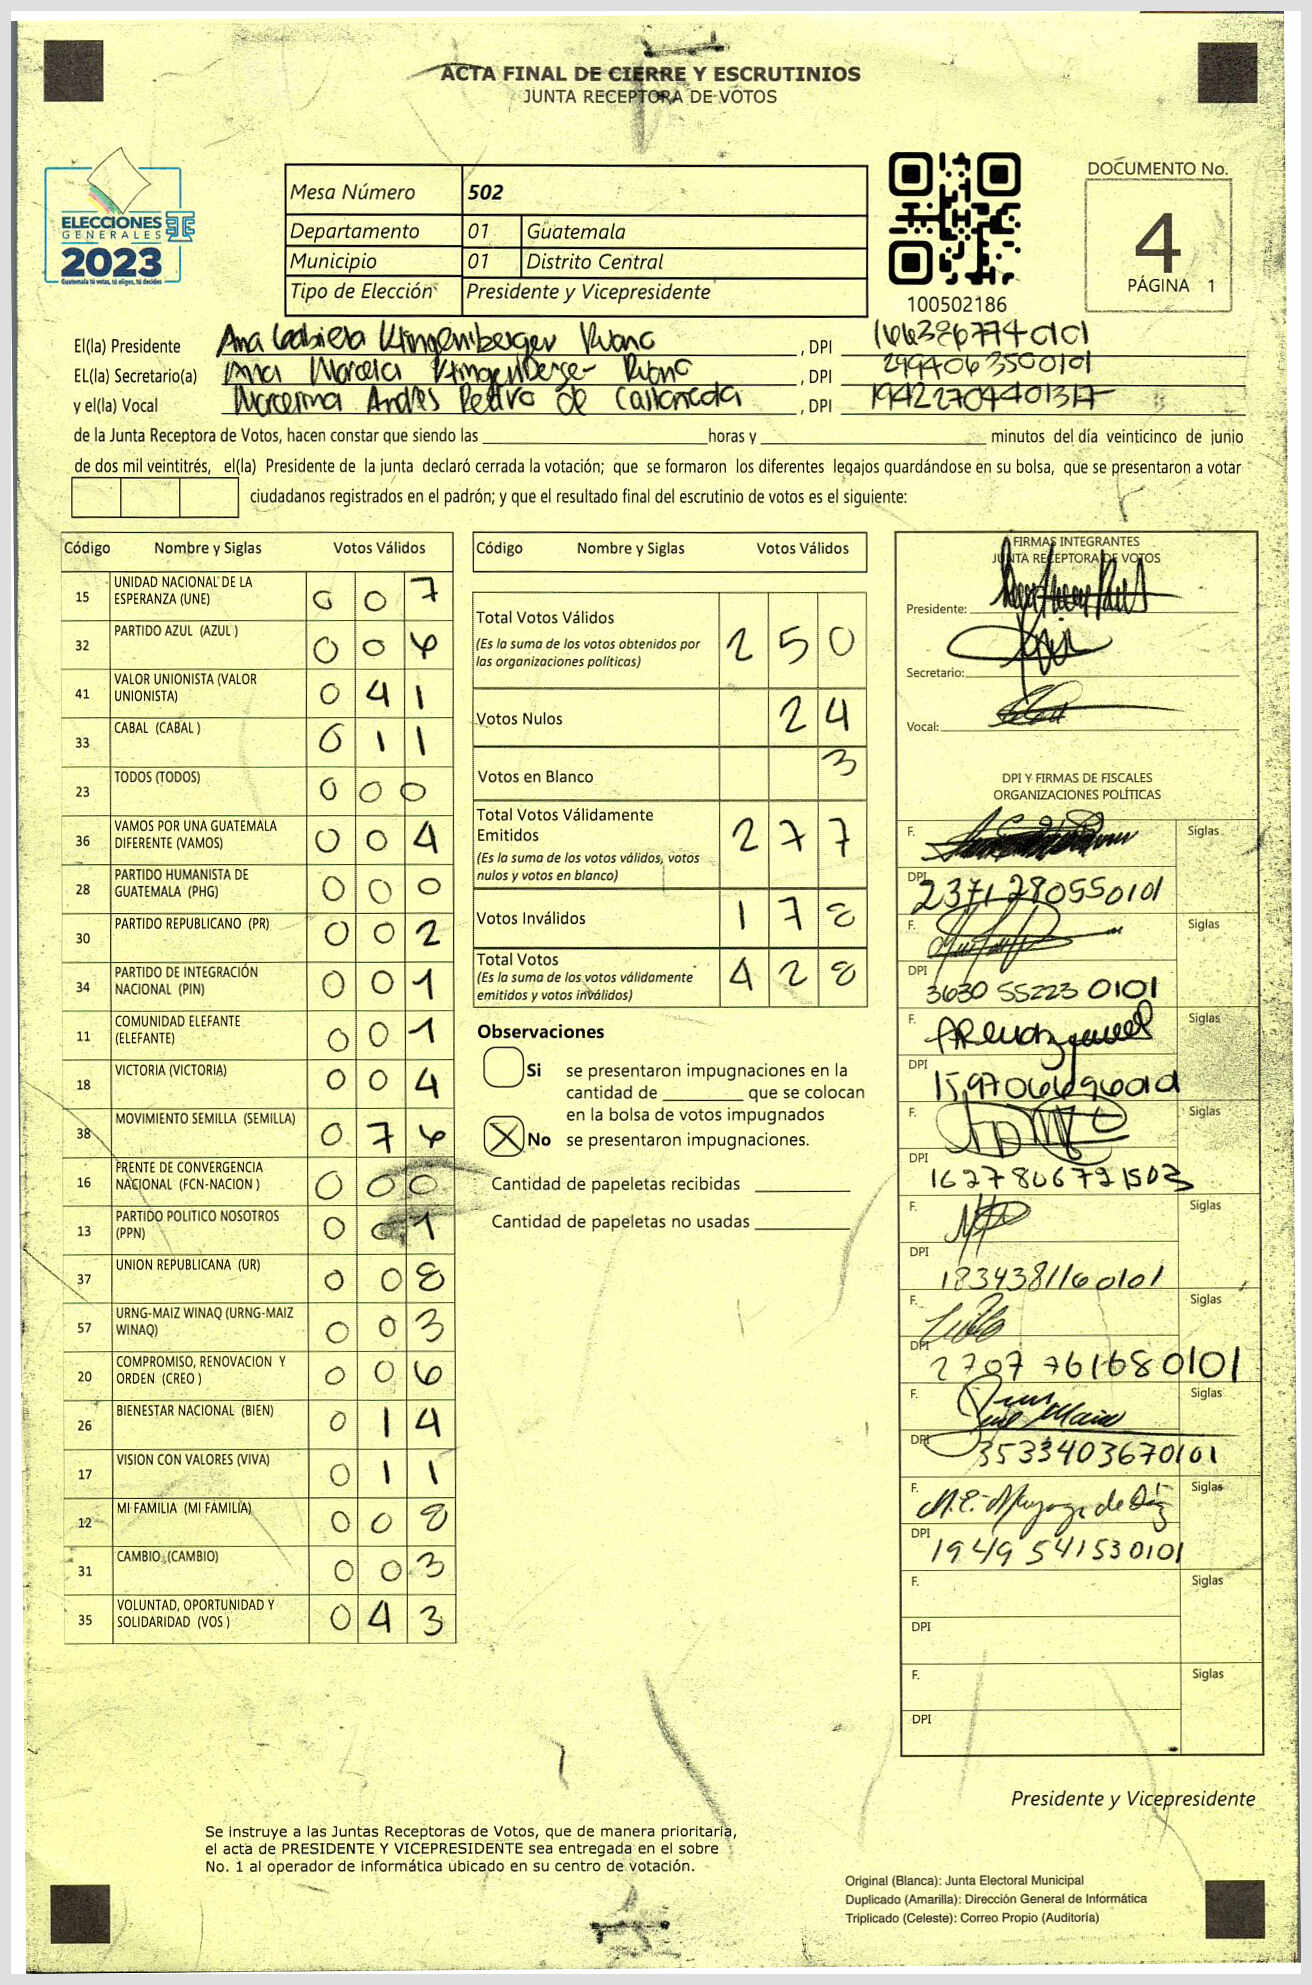 ACTA FINAL DE CIERRE Y ESCRUTINIOS
JUNTA RECEPTORA DE VOTOS
ELECCIONES
GENERALES
2023
Guatemala tú votas, tú eliges, tú decides
Mesa Número 502
Departamento 01 Guatemala
Municipio 01 Distrito Central
Tipo de Elección Presidente y Vicepresidente
100502186
DOCUMENTO No.
4
PÁGINA 1
El(la) Presidente Ana Gabriela Klingenberger Rivano , DPI 1663867740101
EL(la) Secretario(a) Ana Marcela Klingenberger Rivano , DPI 2994063500101
y el(la) Vocal Marcelina Andrés Pedro de Castañeda , DPI 19422704401317
de la Junta Receptora de Votos, hacen constar que siendo las horas y minutos del día veinticinco de junio
de dos mil veintitrés, el(la) Presidente de la junta declaró cerrada la votación; que se formaron los diferentes legajos guardándose en su bolsa, que se presentaron a votar
ciudadanos registrados en el padrón; y que el resultado final del escrutinio de votos es el siguiente:
Código Nombre y Siglas Votos Válidos
15 UNIDAD NACIONAL DE LA ESPERANZA (UNE) 0 0 7
32 PARTIDO AZUL (AZUL ) 0 0 6
41 VALOR UNIONISTA (VALOR UNIONISTA) 0 4 1
33 CABAL (CABAL ) 0 1 1
23 TODOS (TODOS) 0 0 0
36 VAMOS POR UNA GUATEMALA DIFERENTE (VAMOS) 0 0 4
28 PARTIDO HUMANISTA DE GUATEMALA (PHG) 0 0 0
30 PARTIDO REPUBLICANO (PR) 0 0 2
34 PARTIDO DE INTEGRACIÓN NACIONAL (PIN) 0 0 1
11 COMUNIDAD ELEFANTE (ELEFANTE) 0 0 1
18 VICTORIA (VICTORIA) 0 0 4
38 MOVIMIENTO SEMILLA (SEMILLA) 0 7 6
16 FRENTE DE CONVERGENCIA NACIONAL (FCN-NACION ) 0 0 0
13 PARTIDO POLITICO NOSOTROS (PPN) 0 0 1
37 UNION REPUBLICANA (UR) 0 0 8
57 URNG-MAIZ WINAQ (URNG-MAIZ WINAQ) 0 0 3
20 COMPROMISO, RENOVACION Y ORDEN (CREO ) 0 0 6
26 BIENESTAR NACIONAL (BIEN) 0 1 4
17 VISION CON VALORES (VIVA) 0 1 1
12 MI FAMILIA (MI FAMILIA) 0 0 8
31 CAMBIO (CAMBIO) 0 0 3
35 VOLUNTAD, OPORTUNIDAD Y SOLIDARIDAD (VOS ) 0 4 3
Código Nombre y Siglas Votos Válidos
Total Votos Válidos 2 5 0
(Es la suma de los votos obtenidos por
las organizaciones políticas)
Votos Nulos 2 4
Votos en Blanco 3
Total Votos Válidamente
Emitidos 2 7 7
(Es la suma de los votos válidos, votos
nulos y votos en blanco)
Votos Inválidos 1 7 8
Total Votos 4 2 8
(Es la suma de los votos válidamente
emitidos y votos inválidos)
Observaciones
Si se presentaron impugnaciones en la
cantidad de que se colocan
en la bolsa de votos impugnados
X No se presentaron impugnaciones.
Cantidad de papeletas recibidas
Cantidad de papeletas no usadas
FIRMAS INTEGRANTES
JUNTA RECEPTORA DE VOTOS
Presidente:
Secretario:
Vocal:
DPI Y FIRMAS DE FISCALES
ORGANIZACIONES POLÍTICAS
F. Siglas
DPI 2371280550101
F. Siglas
DPI 3630 55223 0101
F. Siglas
DPI
F. Siglas
DPI 1627806721503
F. Siglas
DPI 1834381160101
F. Siglas
DPI 2707 761680101
F. Siglas
DPI 3533403670101
F. Siglas
DPI 1949 541530101
F. Siglas
DPI
F. Siglas
DPI
Presidente y Vicepresidente
Se instruye a las Juntas Receptoras de Votos, que de manera prioritaria,
el acta de PRESIDENTE Y VICEPRESIDENTE sea entregada en el sobre
No. 1 al operador de informática ubicado en su centro de votación.
Original (Blanca): Junta Electoral Municipal
Duplicado (Amarilla): Dirección General de Informática
Triplicado (Celeste): Correo Propio (Auditoría)